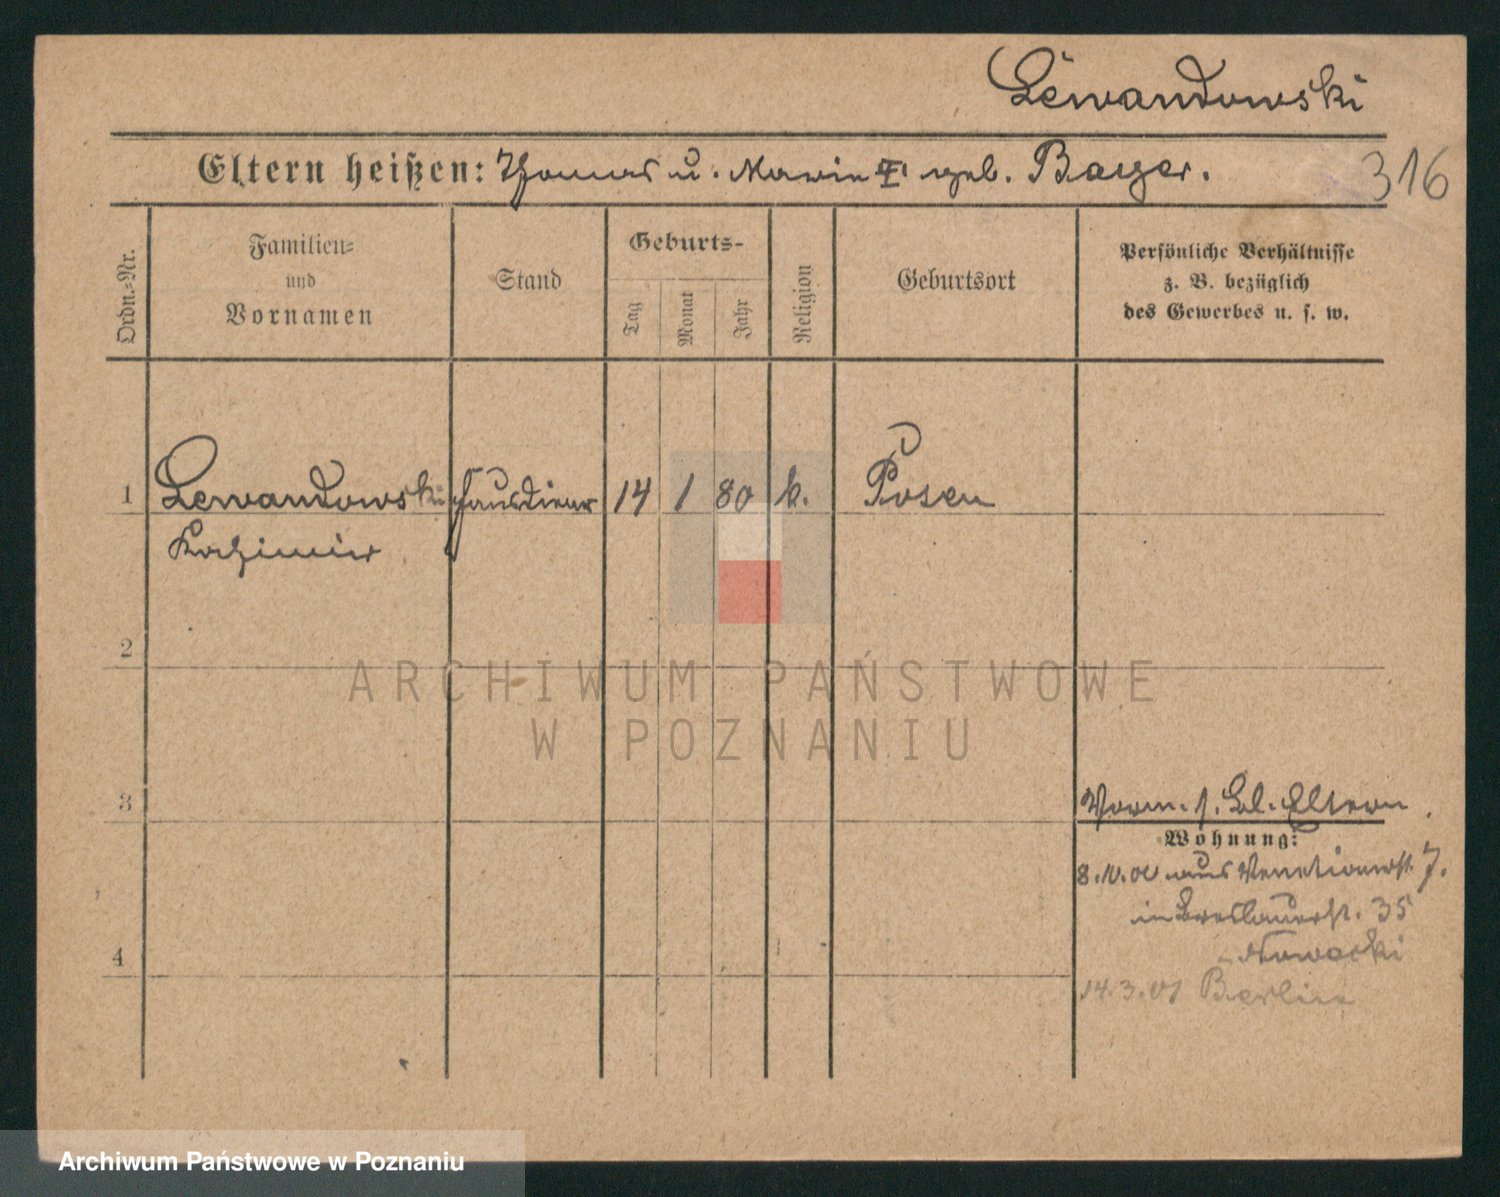 Lewandowski
Eltern heißen: Thomas u. Marie geb. Bayer.
316
Ordn.-Nr.
Familien-
und
Vornamen
Stand
Geburts-
Tag
Monat
Jahr
Religion
Geburtsort
Persönliche Verhältnisse
z. B. bezüglich
des Gewerbes u. s. w.
1 Lewandowski Hausdiener 14 1 80 k. Posen
Kazimir
2
3
Vorm. s. Bl. Eltern
Wohnung:
8. 10. 00 aus Venetianerstr. 7.
in Breslauerstr. 35
Nowacki
4
14. 3. 01 Berlin
ARCHIWUM PAŃSTWOWE
W POZNANIU
Archiwum Państwowe w Poznaniu